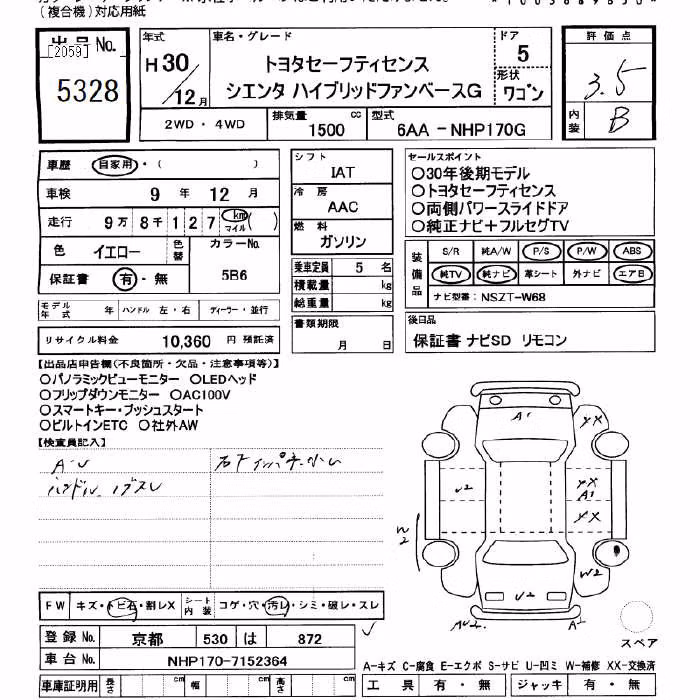 (複合機)対応用紙
出品 No.
[2059]
5328
年式
H30/12月
車名・グレード
トヨタセーフティセンス
シエンタ ハイブリッドファンベースG
ドア
5
形状
ワゴン
2WD ・ 4WD
排気量
1500
cc
型式
6AA -NHP170G
評価点
3.5
内装
B
車歴
自家用・( )
車検
9 年 12 月
走行
9万 8千 1 2 7 km マイル ( )
色
イエロー
色替
カラーNo.
5B6
保証書
有・無
モデル年式 年
ハンドル 左・右
ディーラー・並行
リサイクル料金
10,360 円 預託済
シフト
IAT
冷房
AAC
燃料
ガソリン
乗車定員 5 名
積載量 kg
総重量 kg
書類期限
月 日
セールスポイント
○30年後期モデル
○トヨタセーフティセンス
○両側パワースライドドア
○純正ナビ+フルセグTV
装備品
S/R 純A/W P/S P/W ABS
純TV 純ナビ 革シート 外ナビ エアB
ナビ型番: NSZT-W68
後日品
保証書 ナビSD リモコン
【出品店申告欄(不良箇所・欠品・注意事項等)】
○パノラミックビューモニター ○LEDヘッド
○フリップダウンモニター ○AC100V
○スマートキー・プッシュスタート
○ビルトインETC ○社外AW
【検査員記入】
A・U
ハンドルハゲスレ
A1
XX
U2
XX
A1
XX
W2
W2
U2
AU2
A2
スペア
FW
キズ・トビ石・割レX
シート内装
コゲ・穴・汚レ・シミ・破レ・スレ
登録 No.
京都 530 は 872
車台 No.
NHP170-7152364
車庫証明用
長さ cm
幅 cm
高さ cm
A-キズ C-腐食 E-エクボ S-サビ U-凹ミ W-補修 XX-交換済
工具 有・無
ジャッキ 有・無